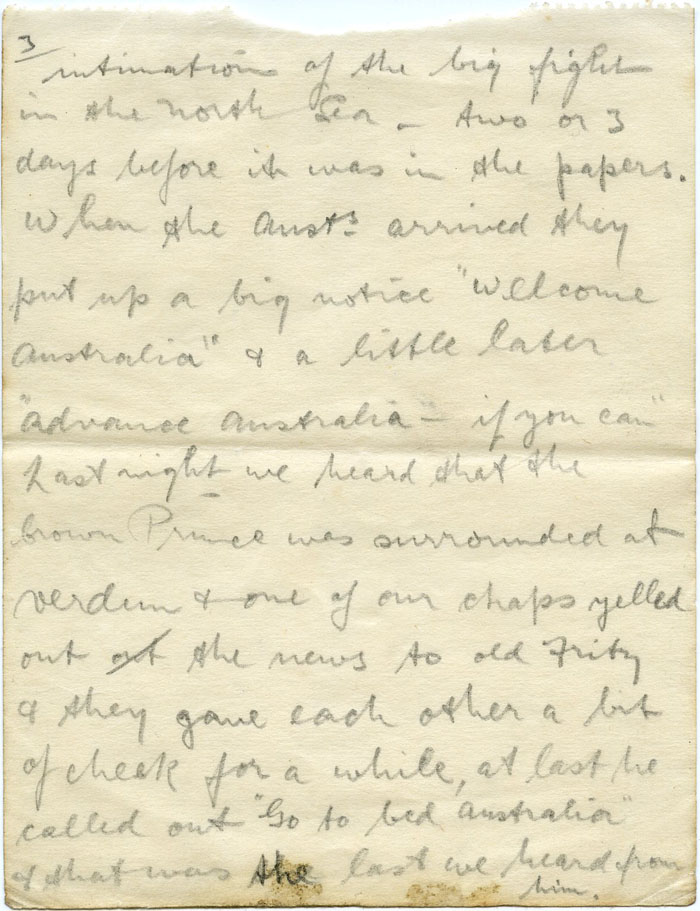 3
intimations of the big fight
in the North Sea - two or 3
days before it was in the papers.
When the Austs. arrived they
put up a big notice "Welcome
Australia" & a little later
"Advance Australia - if you can"
Last night we heard that the
Crown Prince was surrounded at
Verdun & one of our chaps yelled
out the news to old Fritz
& they gave each other a bit
of cheek for a while, at last he
called out "Go to bed Australia"
& that was the last we heard from
him.